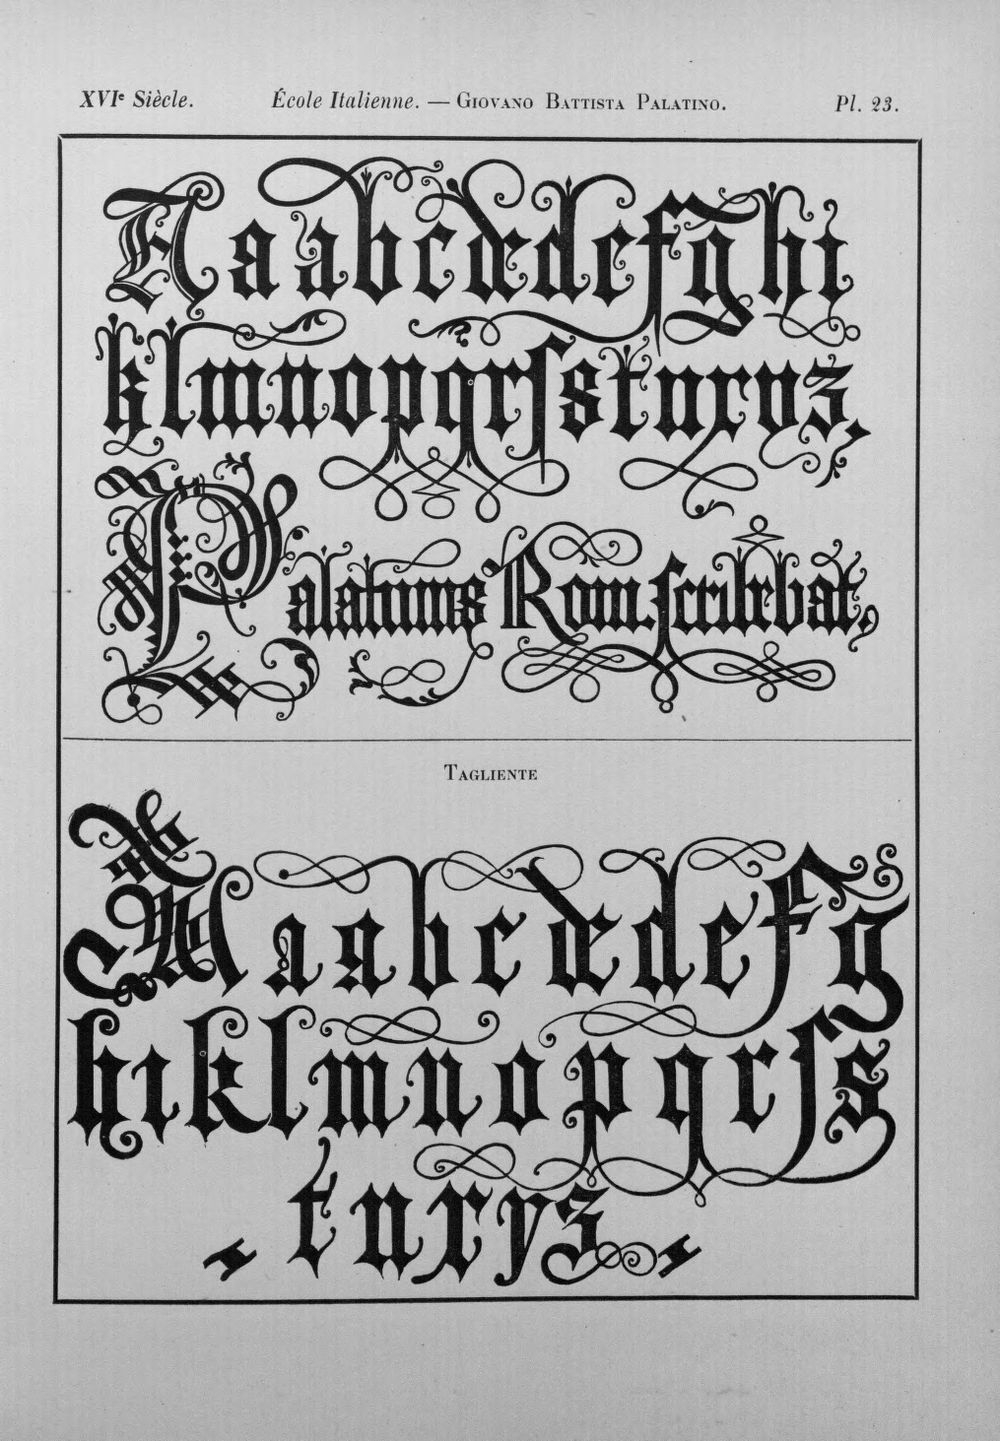 XVIe Siècle. École Italienne. — Giovano Battista Palatino. Pl. 23.
A a a b c d e d e f g h i
k l m n o p q r ſ s t u x y z,
Palatinus Rom. ſcribebat,
Tagliente
A a a b c d e d e f g
h i k l m n o p q r ſ s
t u x y z